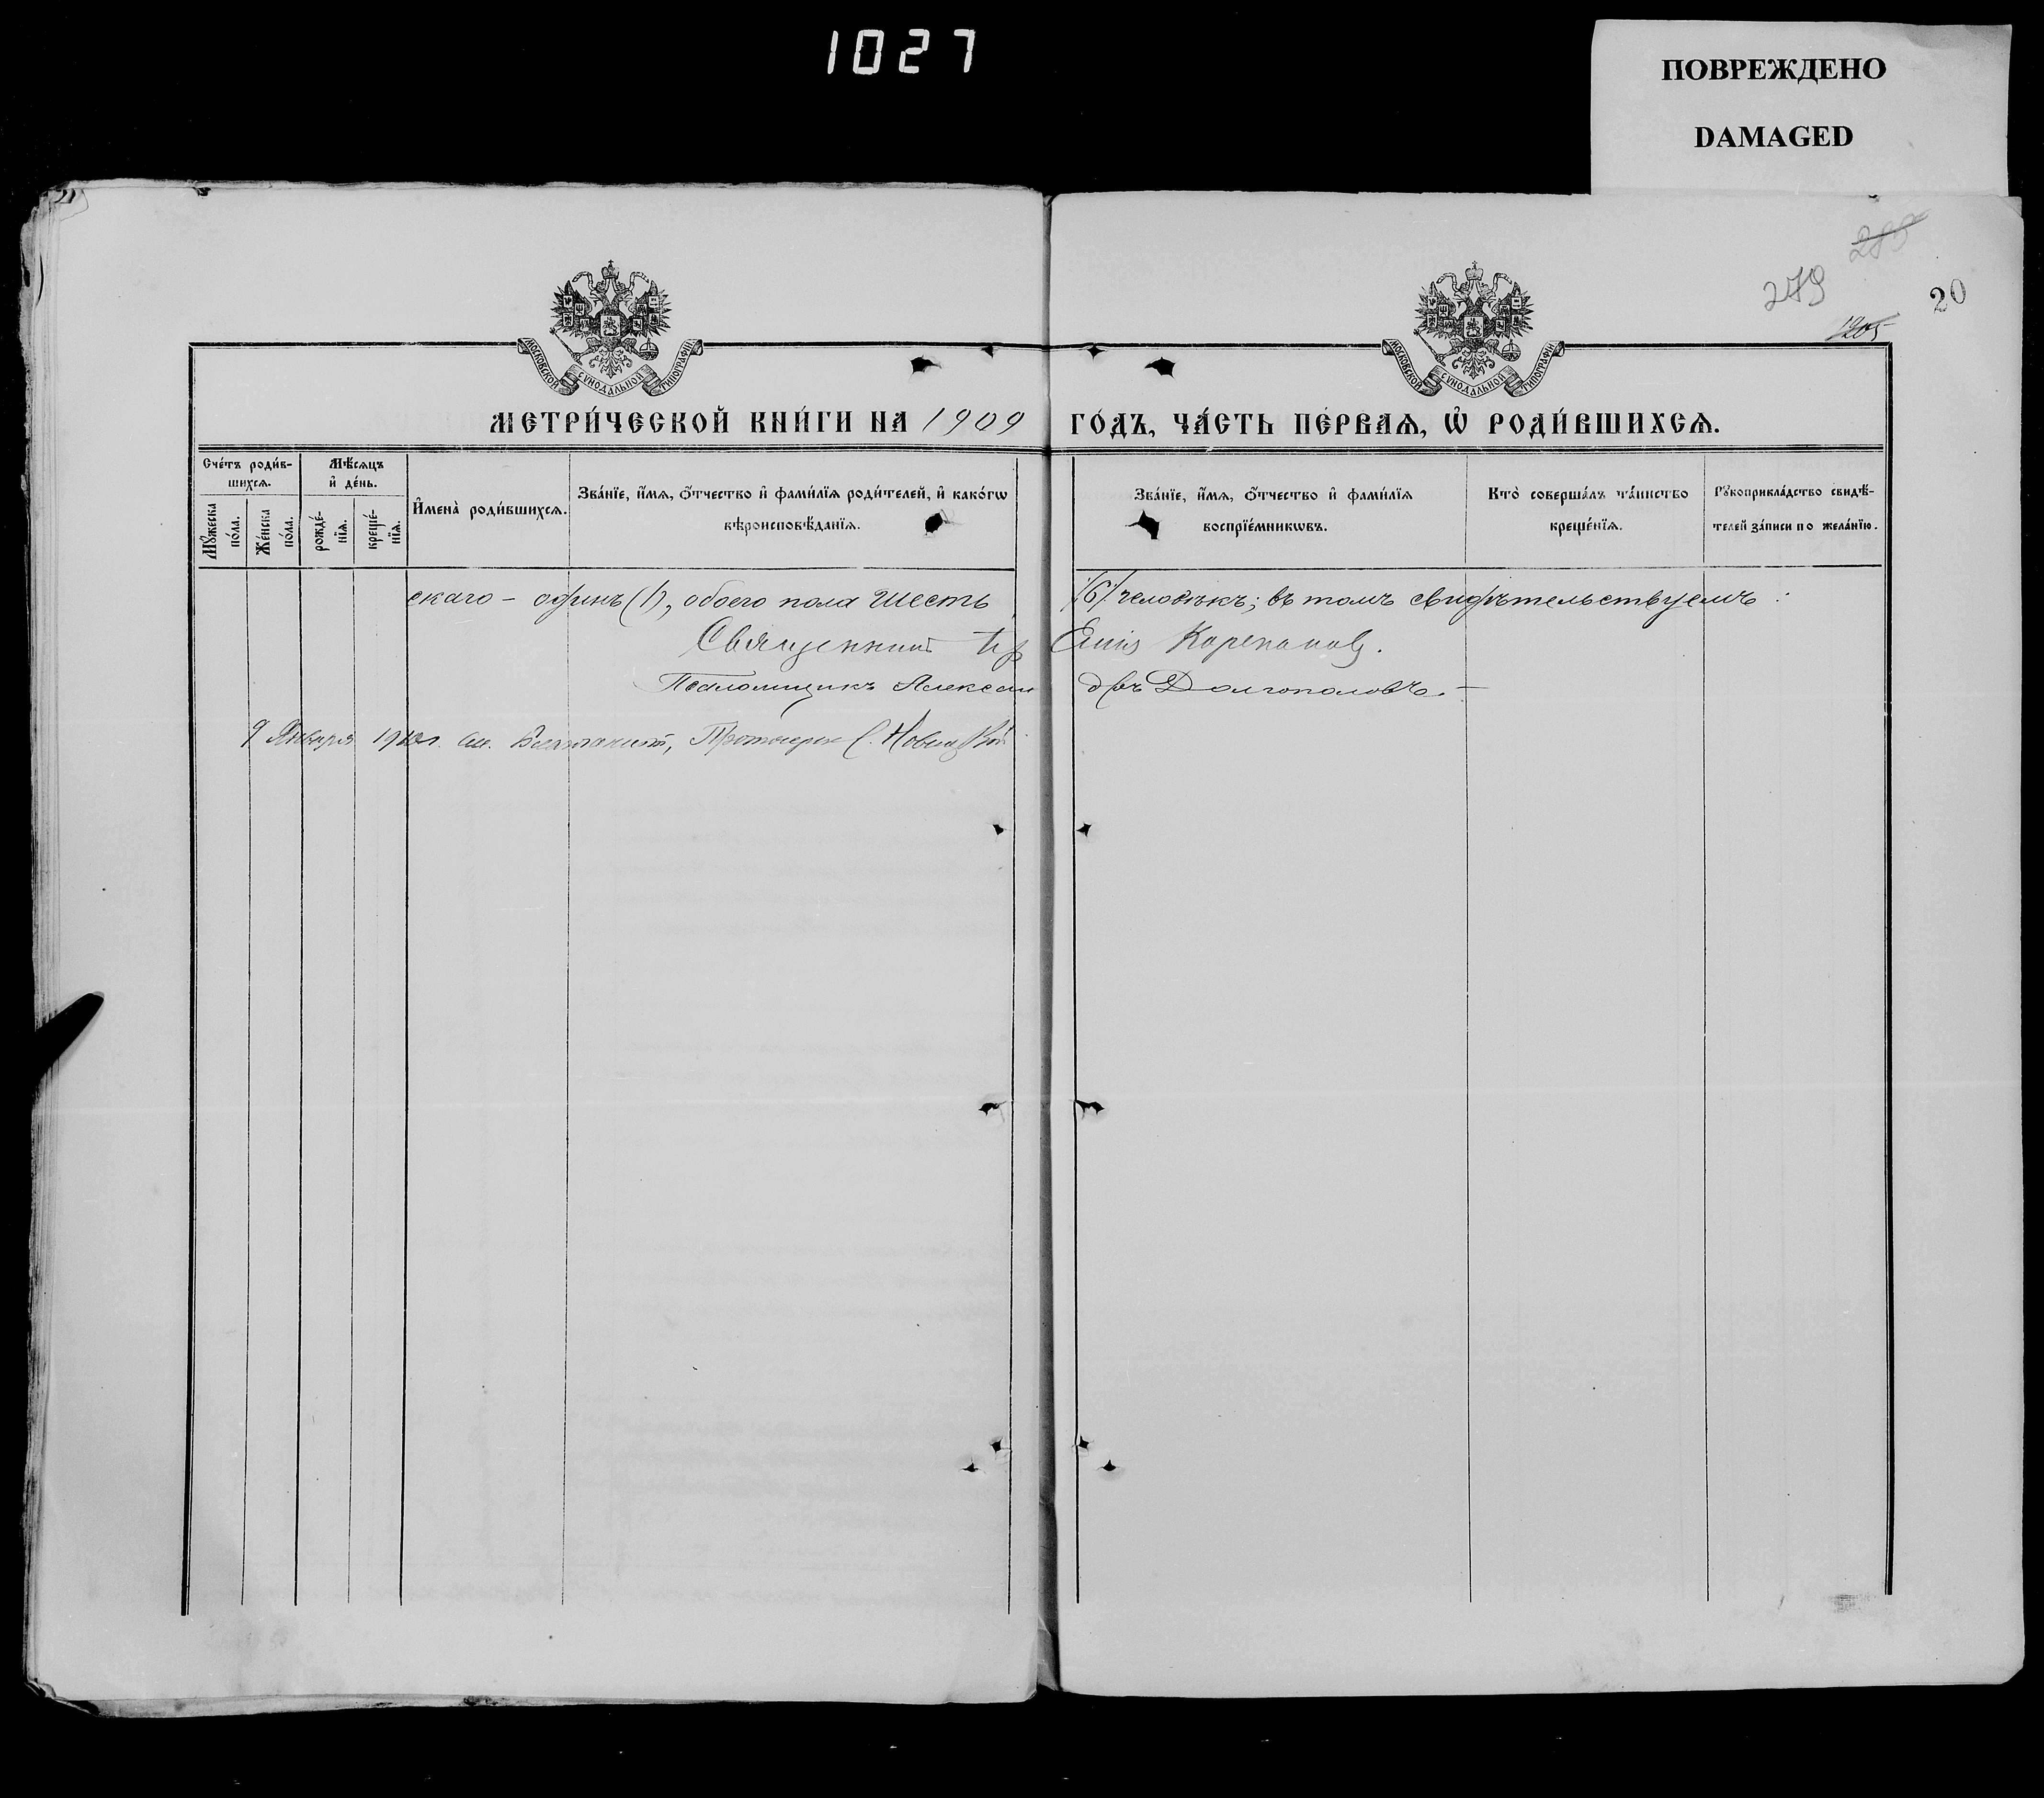 1027
ПОВРЕЖДЕНО
DAMAGED
285
279
20
1205
МОСКОВСКОЙ СѴНОДАЛЬНОЙ ТИПОГРАФІИ
МОСКОВСКОЙ СѴНОДАЛЬНОЙ ТИПОГРАФІИ
МЕТРИ́ЧЕСКОЙ КНИ́ГИ НА 1909 ГО́ДЪ, ЧА́СТЬ ПЕ́РВАѦ, Ѡ҆ РОДИ́ВШИХСѦ.
Сче́тъ роди́в-
шихсѧ.
Мꙋ́жеска
по́ла.
Же́нска
по́ла.
Мѣ́сѧцъ
и҆ де́нь.
рожде́-
нїѧ.
креще́-
нїѧ.
И҆мена̀ роди́вшихсѧ.
Зва́нїе, и҆́мѧ, ѻ҆́тчество и҆ фами́лїѧ роди́телей, и҆ како́гѡ
вѣроисповѣ́данїѧ.
Зва́нїе, и҆́мѧ, ѻ҆́тчество и҆ фами́лїѧ
воспрїе́мникѡвъ.
Кто̀ соверша́лъ та́инство
креще́нїѧ.
Рꙋкоприкла́дство свидѣ́-
телей за́писи по жела́нїю.
скаго – одинъ (1), обоего пола шесть /6/ человѣкъ; въ томъ свидѣтельствуемъ:
Священникъ Корепановъ.
Псаломщикъ Александръ Долгополовъ. –
9 Января 1910 г. Благочинный, Протоіерей С. Новицкій